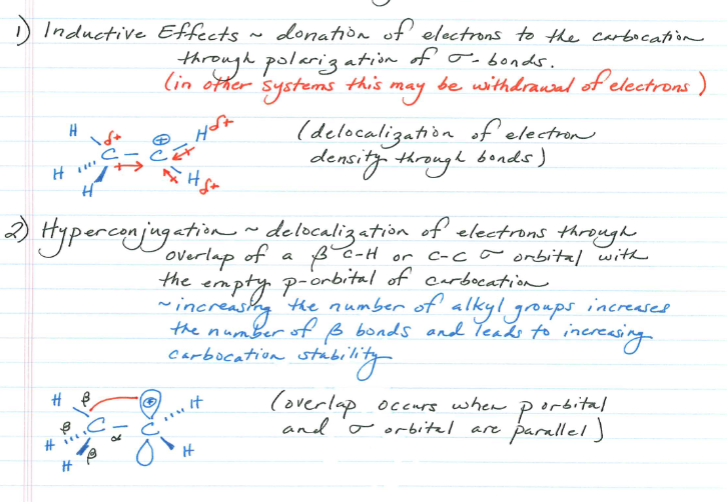 1) Inductive Effects ~ donation of electrons to the carbocation
through polarization of σ-bonds.
(in other systems this may be withdrawal of electrons)
(delocalization of electron
density through bonds)
H δ+ ⊕ H δ+
C – C
H
H H δ+
2) Hyperconjugation ~ delocalization of electrons through
overlap of a β C-H or C-C σ orbital with
the empty p-orbital of carbocation
~increasing the number of alkyl groups increases
the number of β bonds and leads to increasing
carbocation stability
H β ⊕ H
β C – C
α
H β H
H
(overlap occurs when p orbital
and σ orbital are parallel)